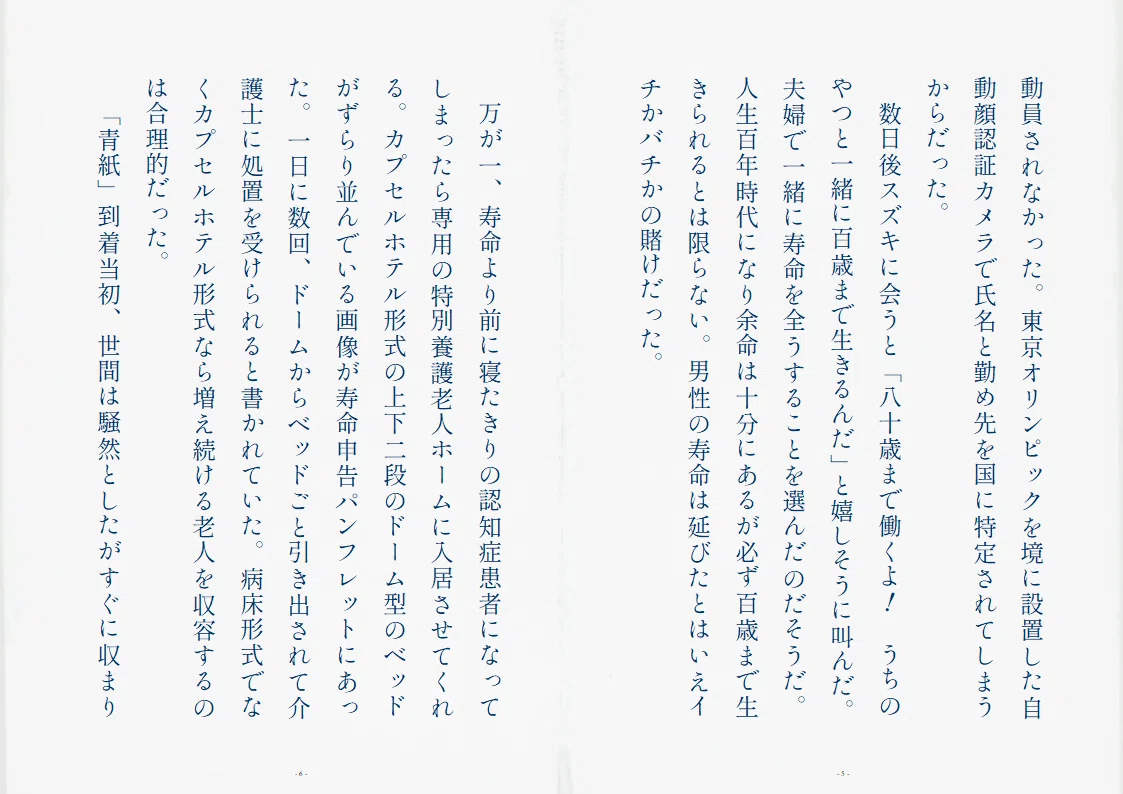 動員されなかった。東京オリンピックを境に設置した自
動顔認証カメラで氏名と勤め先を国に特定されてしまう
からだった。
　数日後スズキに会うと「八十歳まで働くよ！　うちの
やつと一緒に百歳まで生きるんだ」と嬉しそうに叫んだ。
夫婦で一緒に寿命を全うすることを選んだのだそうだ。
人生百年時代になり余命は十分にあるが必ず百歳まで生
きられるとは限らない。男性の寿命は延びたとはいえイ
チかバチかの賭けだった。
- 5 -
　万が一、寿命より前に寝たきりの認知症患者になって
しまったら専用の特別養護老人ホームに入居させてくれ
る。カプセルホテル形式の上下二段のドーム型のベッド
がずらり並んでいる画像が寿命申告パンフレットにあっ
た。一日に数回、ドームからベッドごと引き出されて介
護士に処置を受けられると書かれていた。病床形式でな
くカプセルホテル形式なら増え続ける老人を収容するの
は合理的だった。
　「青紙」到着当初、世間は騒然としたがすぐに収まり
- 6 -